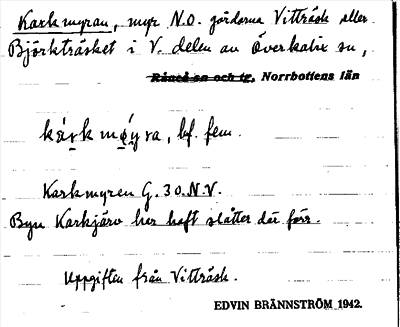 Karkmyran, myr N.O. gårdarna Vitträsk eller
Björkträsket i V. delen av Överkalix sn,
Råneå sn och tg, Norrbottens län
bf. fem.
Karkmyren G. 30. N.V.
Byn Karkjärv har haft slåtter där förr.
Uppgiften från Vitträsk.
EDVIN BRÄNNSTRÖM 1942.